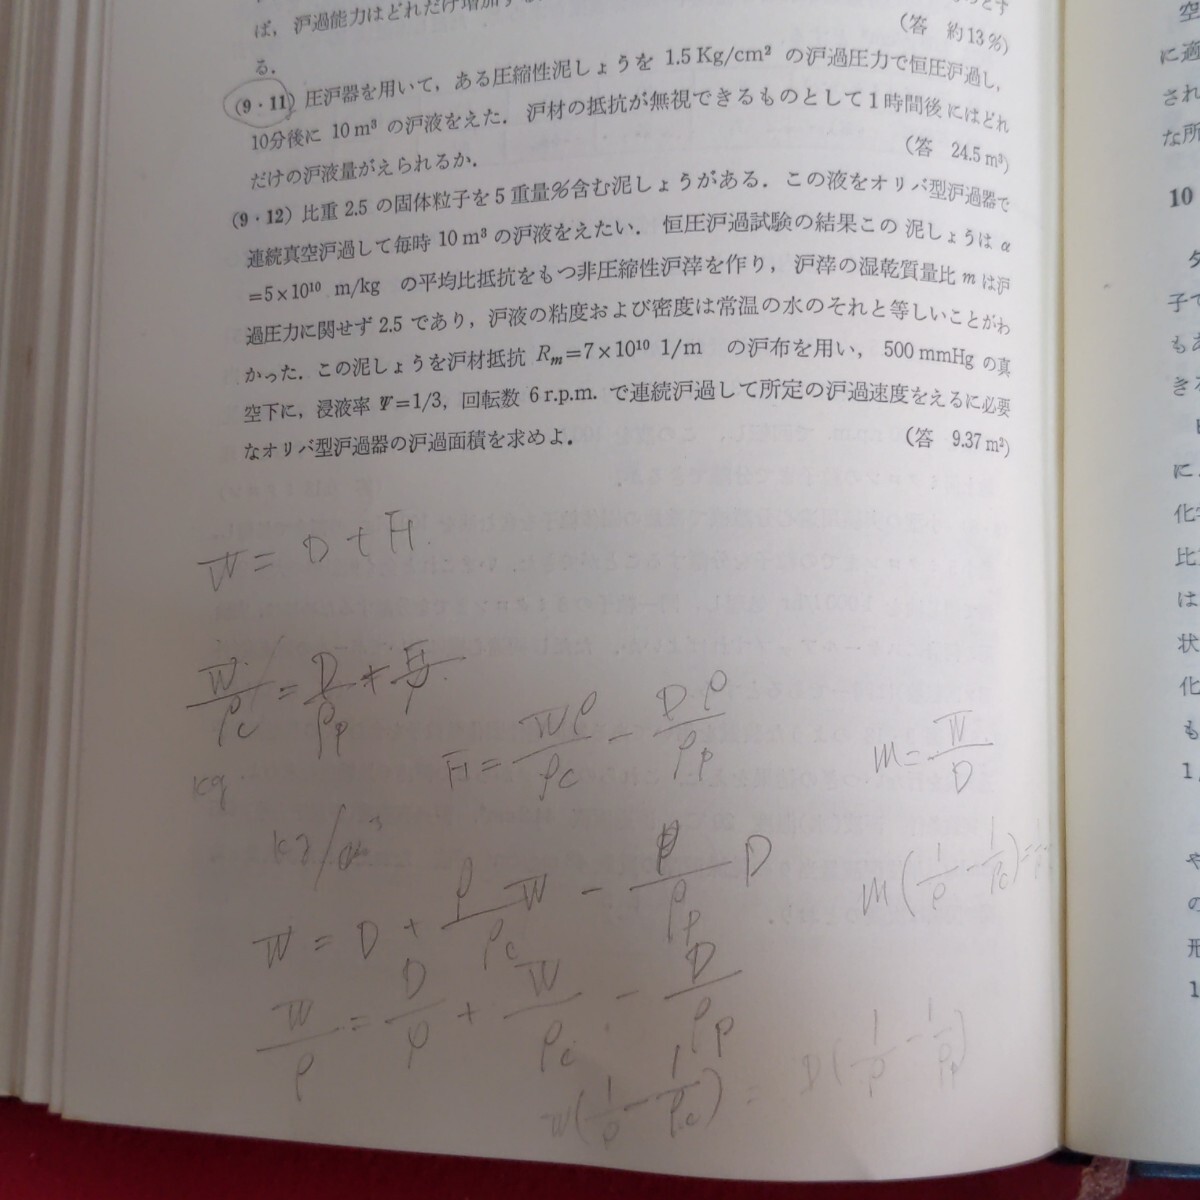 ば,沪過能力はどれだけ増加する
る.
(答 約13%)
(9・11) 圧沪器を用いて,ある圧縮性泥しょうを 1.5 Kg/cm² の沪過圧力で恒圧沪過し,
10分後に 10 m³ の沪液をえた.沪材の抵抗が無視できるものとして1時間後にはどれ
だけの沪液量がえられるか.
(答 24.5 m³)
(9・12) 比重 2.5 の固体粒子を5重量%含む泥しょうがある.この液をオリバ型沪過器で
連続真空沪過して毎時 10 m³ の沪液をえたい.恒圧沪過試験の結果この泥しょうは α
=5×10¹⁰ m/kg の平均比抵抗をもつ非圧縮性沪滓を作り,沪滓の湿乾質量比 m は沪
過圧力に関せず 2.5 であり,沪液の粘度および密度は常温の水のそれと等しいことがわ
かった.この泥しょうを沪材抵抗 Rm=7×10¹⁰ 1/m の沪布を用い,500 mmHg の真
空下に,浸液率 Ψ=1/3,回転数 6 r.p.m. で連続沪過して所定の沪過速度をえるに必要
なオリバ型沪過器の沪過面積を求めよ.
(答 9.37 m²)
W = D + F
W/ρc = D/ρp + F/ρ
kg
F = Wρ/ρc - Dρ/ρp
m = W/D
kg/m³
W = D + ρ/ρc W - ρ/ρp D
m(1/ρ - 1/ρc) =
W/ρ = D/ρ + W/ρc - D/ρp
W(1/ρ - 1/ρc) = D(1/ρ - 1/ρp)
空
に適
され
な所
10
タ
子で
もあ
きる
に
化
比
は
状
化
も
1
や
の
形
1